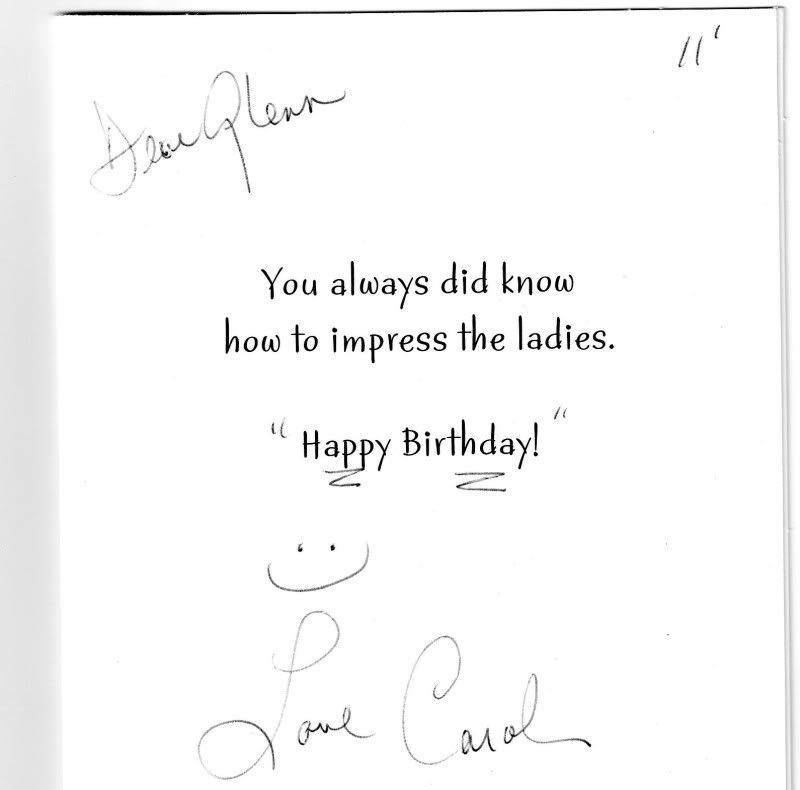 11'
Dear Glenn
You always did know
how to impress the ladies.
"Happy Birthday!"
Love Carol